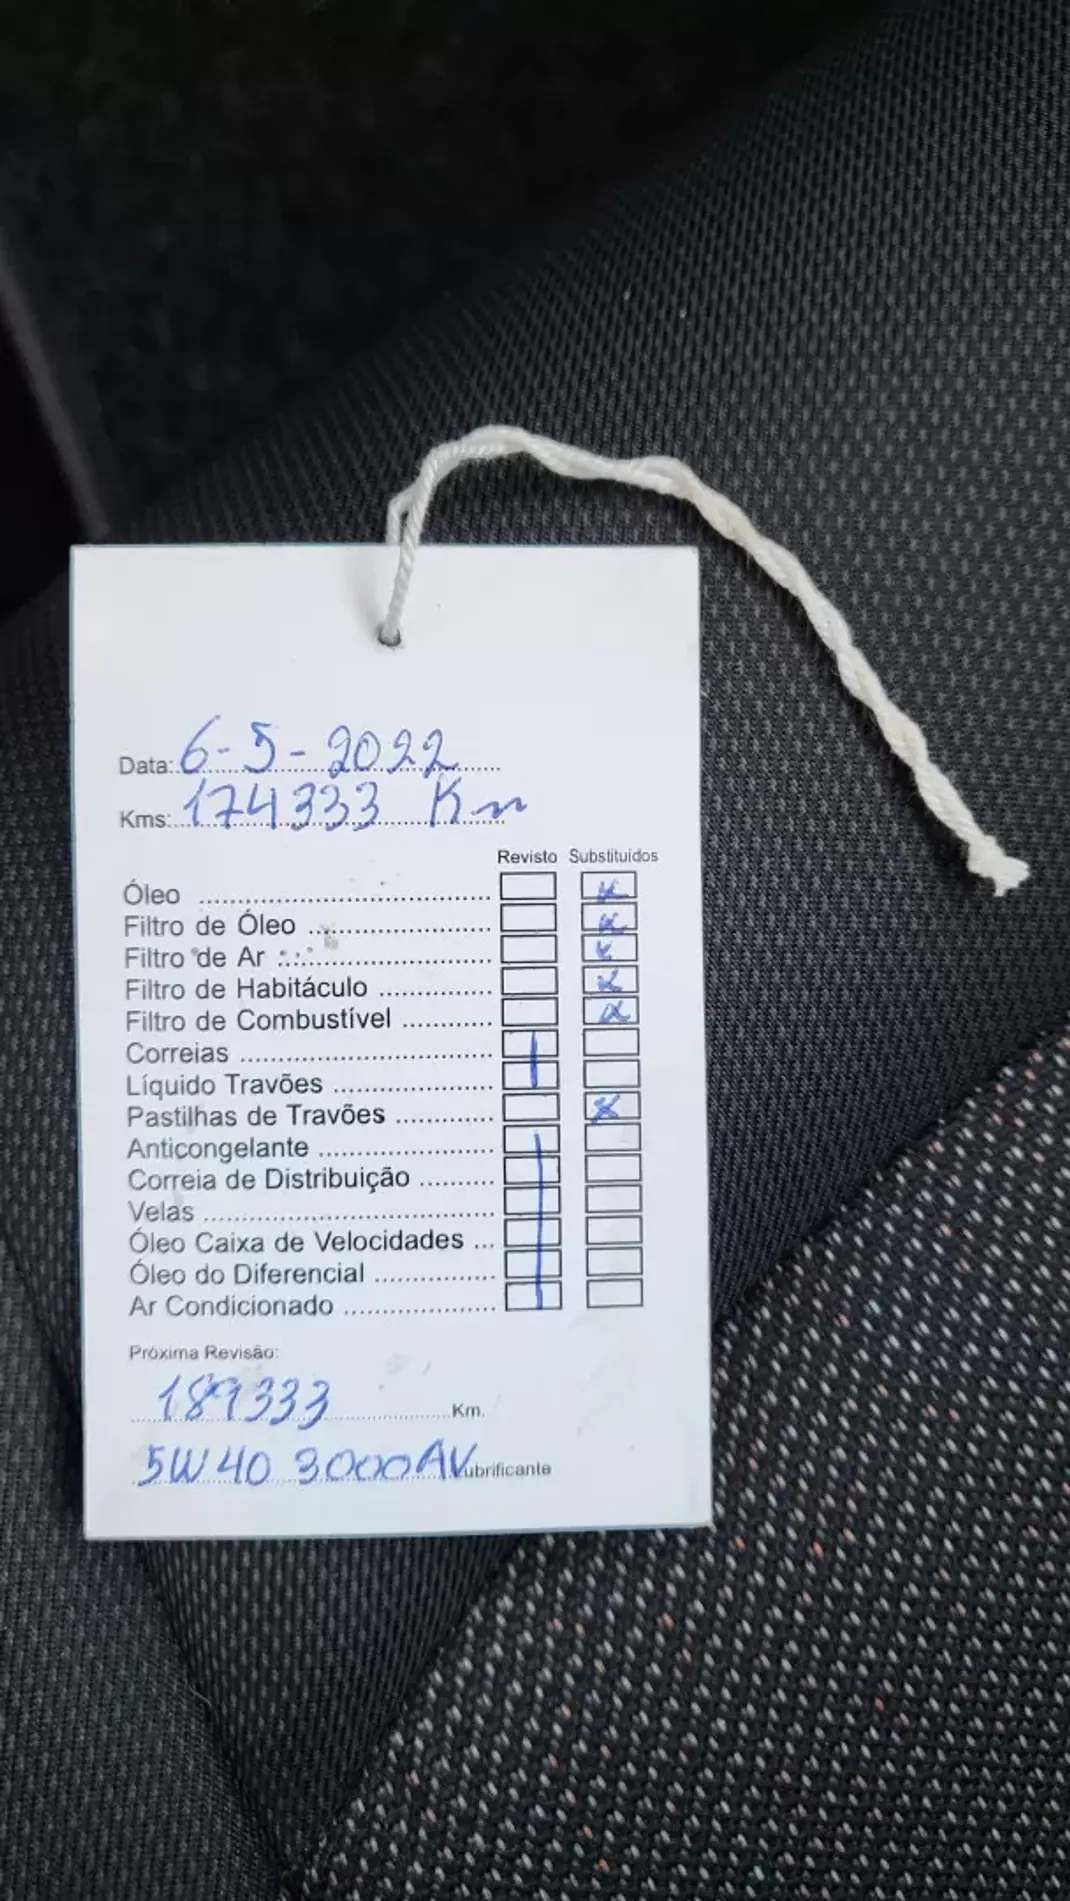 Data: 6-5-2022
Kms: 174333 Km
Revisto Substituidos
Óleo
Filtro de Óleo
Filtro de Ar
Filtro de Habitáculo
Filtro de Combustível
Correias
Líquido Travões
Pastilhas de Travões
Anticongelante
Correia de Distribuição
Velas
Óleo Caixa de Velocidades
Óleo do Diferencial
Ar Condicionado
Próxima Revisão:
189333 Km.
5W40 3000AV Lubrificante